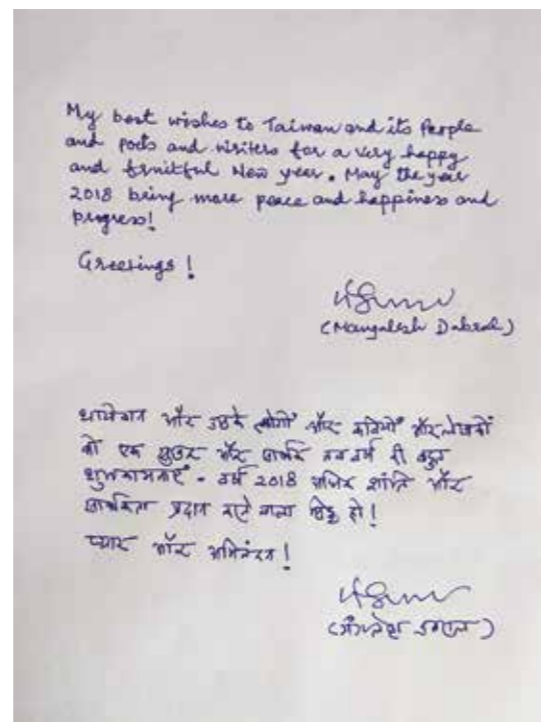 My best wishes to Taiwan and its People
and poets and writers for a very happy
and fruitful New year. May the year
2018 bring more peace and happiness and
progress!
Greetings!
(Mangalesh Dabral)
और उसके लोगों और कवियों और लेखकों
को एक सुन्दर और सार्थक नव वर्ष की बहुत
शुभकामनाएँ - वर्ष 2018 अधिक शांति और
सार्थकता प्रदान करने वाला सिद्ध हो!
प्यार और अभिनंदन!
(मंगलेश डबराल)